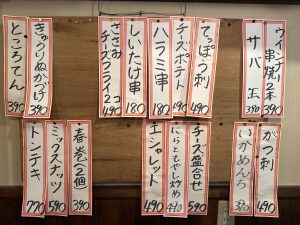 ウインナー串焼2本 390
サバ玉 390
てっぽう刺 490
チーズポテト 490
ハラミ串 180
しいたけ串 180
ささみチーズフライ2コ 490
きゅうりぬかづけ 390
ところてん 390
がつ刺 490
いかめんち 390
チーズ盛合せ 590
にらともやし炒め 490
エシャレット 490
春巻2個 390
ミックスナッツ 590
トンテキ 770